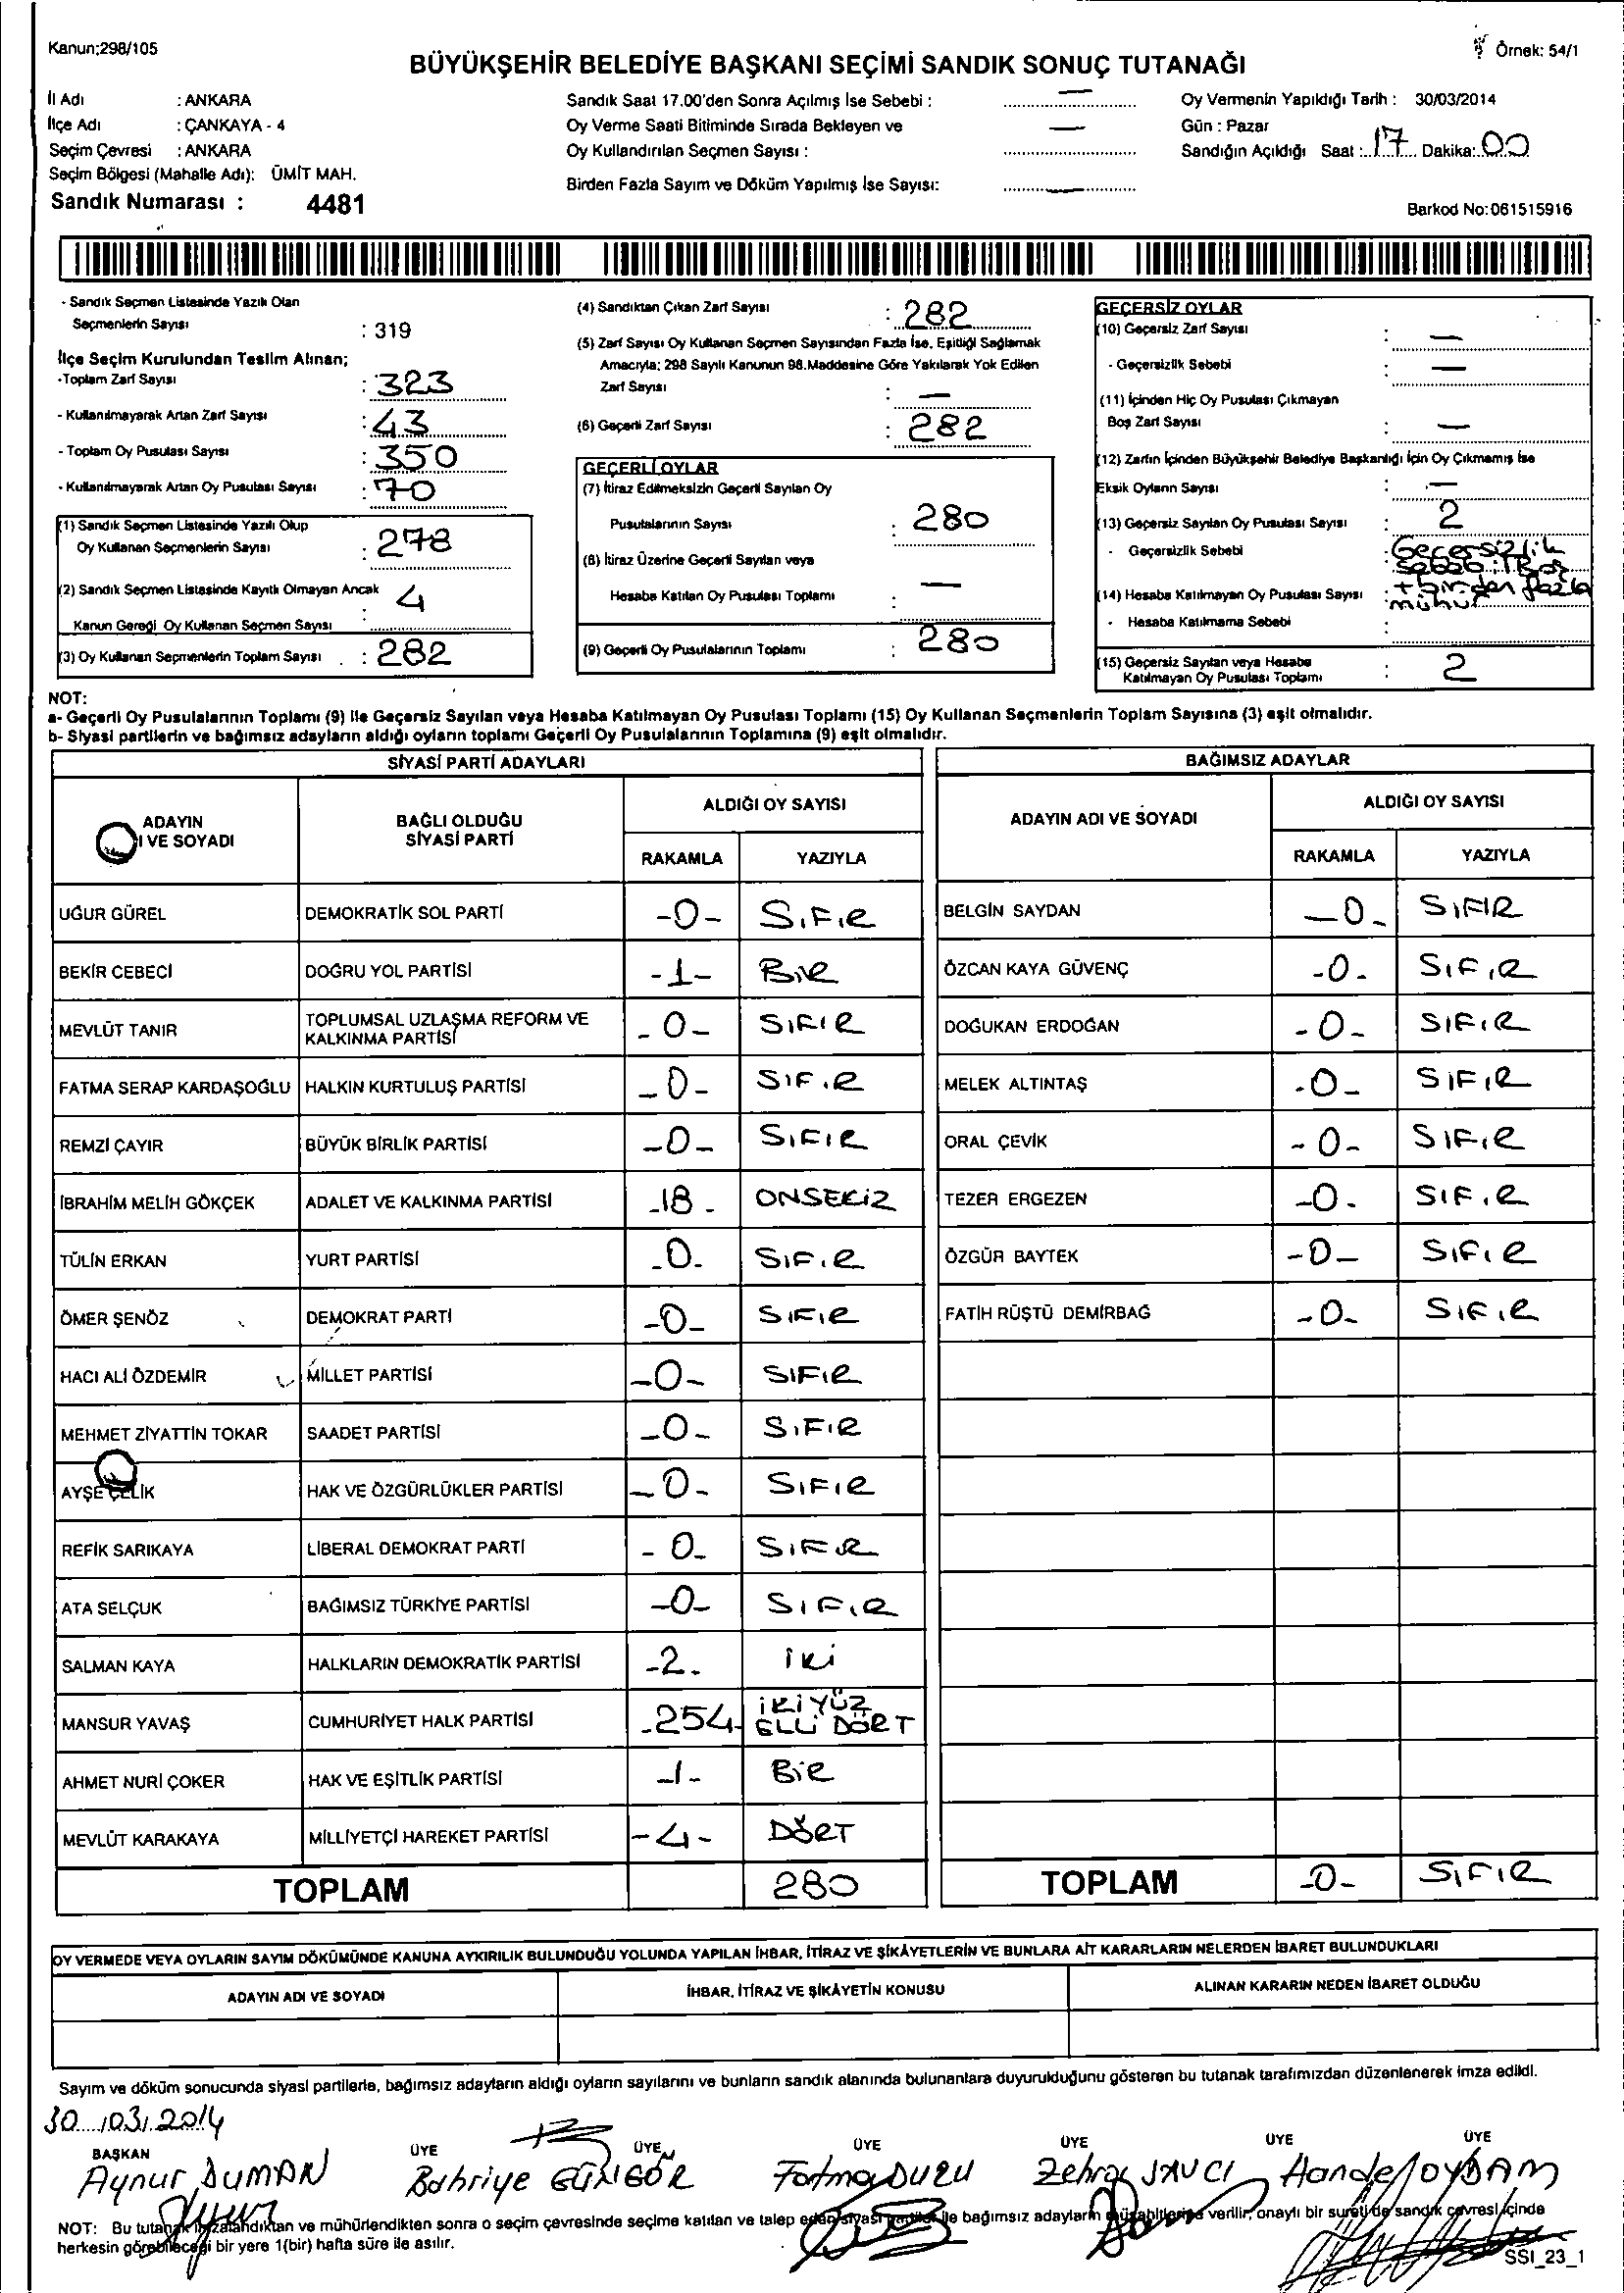 Kanun;298/105
Örnek: 54/1
BÜYÜKŞEHİR BELEDİYE BAŞKANI SEÇİMİ SANDIK SONUÇ TUTANAĞI
İl Adı : ANKARA
İlçe Adı : ÇANKAYA - 4
Seçim Çevresi : ANKARA
Seçim Bölgesi (Mahalle Adı): ÜMİT MAH.
Sandık Numarası : 4481
Sandık Saat 17.00'den Sonra Açılmış İse Sebebi : —
Oy Verme Saati Bitiminde Sırada Bekleyen ve
Oy Kullandırılan Seçmen Sayısı : —
Birden Fazla Sayım ve Döküm Yapılmış İse Sayısı: —
Oy Vermenin Yapıldığı Tarih : 30/03/2014
Gün : Pazar
Sandığın Açıldığı Saat : 17 Dakika: 00
Barkod No:061515916
- Sandık Seçmen Listesinde Yazılı Olan
Seçmenlerin Sayısı : 319
İlçe Seçim Kurulundan Teslim Alınan;
-Toplam Zarf Sayısı : 323
- Kullanılmayarak Artan Zarf Sayısı : 43
- Toplam Oy Pusulası Sayısı : 350
- Kullanılmayarak Artan Oy Pusulası Sayısı : 70
(1) Sandık Seçmen Listesinde Yazılı Olup
Oy Kullanan Seçmenlerin Sayısı : 278
(2) Sandık Seçmen Listesinde Kayıtlı Olmayan Ancak
Kanun Gereği Oy Kullanan Seçmen Sayısı : 4
(3) Oy Kullanan Seçmenlerin Toplam Sayısı : 282
(4) Sandıktan Çıkan Zarf Sayısı : 282
(5) Zarf Sayısı Oy Kullanan Seçmen Sayısından Fazla İse, Eşitliği Sağlamak
Amacıyla; 298 Sayılı Kanunun 98.Maddesine Göre Yakılarak Yok Edilen
Zarf Sayısı : —
(6) Geçerli Zarf Sayısı : 282
GEÇERLİ OYLAR
(7) İtiraz Edilmeksizin Geçerli Sayılan Oy
Pusulalarının Sayısı : 280
(8) İtiraz Üzerine Geçerli Sayılan veya
Hesaba Katılan Oy Pusulası Toplamı : —
(9) Geçerli Oy Pusulalarının Toplamı : 280
GEÇERSİZ OYLAR
(10) Geçersiz Zarf Sayısı : —
- Geçersizlik Sebebi : —
(11) İçinden Hiç Oy Pusulası Çıkmayan
Boş Zarf Sayısı : —
(12) Zarfın İçinden Büyükşehir Belediye Başkanlığı İçin Oy Çıkmamış İse
Eksik Oyların Sayısı : —
(13) Geçersiz Sayılan Oy Pusulası Sayısı : 2
- Geçersizlik Sebebi : Geçersizlik
sebebi: 1 Boş
(14) Hesaba Katılmayan Oy Pusulası Sayısı : + birden fazla
mühür
- Hesaba Katılmama Sebebi :
(15) Geçersiz Sayılan veya Hesaba
Katılmayan Oy Pusulası Toplamı : 2
NOT:
a- Geçerli Oy Pusulalarının Toplamı (9) ile Geçersiz Sayılan veya Hesaba Katılmayan Oy Pusulası Toplamı (15) Oy Kullanan Seçmenlerin Toplam Sayısına (3) eşit olmalıdır.
b- Siyasi partilerin ve bağımsız adayların aldığı oyların toplamı Geçerli Oy Pusulalarının Toplamına (9) eşit olmalıdır.
SİYASİ PARTİ ADAYLARI
ADAYIN
I VE SOYADI
BAĞLI OLDUĞU
SİYASİ PARTİ
ALDIĞI OY SAYISI
RAKAMLA YAZIYLA
UĞUR GÜREL DEMOKRATİK SOL PARTİ -0- SIFIR
BEKİR CEBECİ DOĞRU YOL PARTİSİ -1- BİR
MEVLÜT TANIR TOPLUMSAL UZLAŞMA REFORM VE
KALKINMA PARTİSİ -0- SIFIR
FATMA SERAP KARDAŞOĞLU HALKIN KURTULUŞ PARTİSİ -0- SIFIR
REMZİ ÇAYIR BÜYÜK BİRLİK PARTİSİ -0- SIFIR
İBRAHİM MELİH GÖKÇEK ADALET VE KALKINMA PARTİSİ -18- ONSEKİZ
TÜLİN ERKAN YURT PARTİSİ -0- SIFIR
ÖMER ŞENÖZ DEMOKRAT PARTİ -0- SIFIR
HACI ALİ ÖZDEMİR MİLLET PARTİSİ -0- SIFIR
MEHMET ZİYATTİN TOKAR SAADET PARTİSİ -0- SIFIR
AYŞE ÇELİK HAK VE ÖZGÜRLÜKLER PARTİSİ -0- SIFIR
REFİK SARIKAYA LİBERAL DEMOKRAT PARTİ -0- SIFIR
ATA SELÇUK BAĞIMSIZ TÜRKİYE PARTİSİ -0- SIFIR
SALMAN KAYA HALKLARIN DEMOKRATİK PARTİSİ -2- İKİ
MANSUR YAVAŞ CUMHURİYET HALK PARTİSİ -254- İKİYÜZ
ELLİ DÖRT
AHMET NURİ ÇOKER HAK VE EŞİTLİK PARTİSİ -1- BİR
MEVLÜT KARAKAYA MİLLİYETÇİ HAREKET PARTİSİ -4- DÖRT
TOPLAM 280
BAĞIMSIZ ADAYLAR
ADAYIN ADI VE SOYADI
ALDIĞI OY SAYISI
RAKAMLA YAZIYLA
BELGİN SAYDAN -0- SIFIR
ÖZCAN KAYA GÜVENÇ -0- SIFIR
DOĞUKAN ERDOĞAN -0- SIFIR
MELEK ALTINTAŞ -0- SIFIR
ORAL ÇEVİK -0- SIFIR
TEZER ERGEZEN -0- SIFIR
ÖZGÜR BAYTEK -0- SIFIR
FATİH RÜŞTÜ DEMİRBAĞ -0- SIFIR
TOPLAM -0- SIFIR
OY VERMEDE VEYA OYLARIN SAYIM DÖKÜMÜNDE KANUNA AYKIRILIK BULUNDUĞU YOLUNDA YAPILAN İHBAR, İTİRAZ VE ŞİKÂYETLERİN VE BUNLARA AİT KARARLARIN NELERDEN İBARET BULUNDUKLARI
ADAYIN ADI VE SOYADI İHBAR, İTİRAZ VE ŞİKÂYETİN KONUSU ALINAN KARARIN NEDEN İBARET OLDUĞU
Sayım ve döküm sonucunda siyasi partilerle, bağımsız adayların aldığı oyların sayılarını ve bunların sandık alanında bulunanlara duyurulduğunu gösteren bu tutanak tarafımızdan düzenlenerek imza edildi.
30/03/2014
BAŞKAN ÜYE ÜYE ÜYE ÜYE ÜYE ÜYE
Aynur DUMAN Bahriye GÜNGÖR Fatma DURU Zehra SAVCI Hande OYDAM
NOT: Bu tutanak imzalandıktan ve mühürlendikten sonra o seçim çevresinde seçime katılan ve talep eden siyasi partiler ile bağımsız adayların müşahitlerine verilir, onaylı bir sureti de sandık çevresi içinde
herkesin görebileceği bir yere 1(bir) hafta süre ile asılır.
SSI_23_1